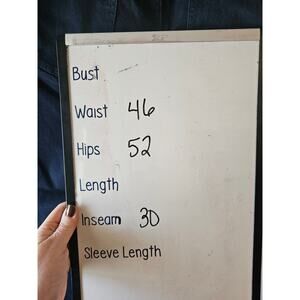 Bust
Waist 46
Hips 52
Length
Inseam 30
Sleeve Length